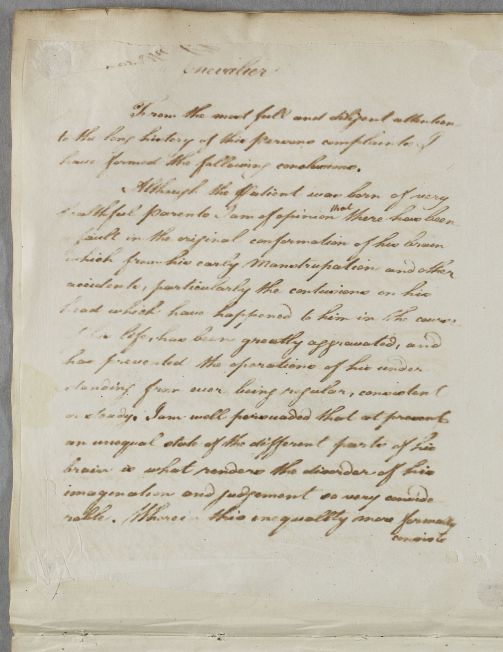 Chevalier
From the most full and diligent attention
to the long history of this Persons complaints I
have formed the following conclusions.
Although the Patient was born of very
healthful Parents I am of opinion that there has been
fault in the original conformation of his brain
which from his early Manstrupation and other
accidents, particularly the contusions on his
head which have happened to him in the course
his life has been greatly aggravated, and
has prevented the operations of his under
standing from ever being regular, consistent
or steady. I am well persuaded that at present
an unequal state of the different parts of his
brain is what renders the disorder of his
imagination and judgement so very conside
rable. Wherein this inequality more formerly
consists